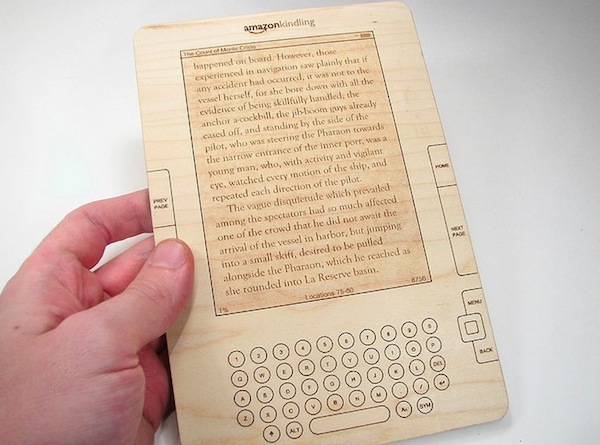 amazonkindling
The Count of Monte Cristo
happened on board. However, those
experienced in navigation saw plainly that if
any accident had occurred, it was not to the
vessel herself, for she bore down with all the
evidence of being skillfully handled, the
anchor a-cockbill, the jib-boom guys already
eased off, and standing by the side of the
pilot, who was steering the Pharaon towards
the narrow entrance of the inner port, was a
young man, who, with activity and vigilant
eye, watched every motion of the ship, and
repeated each direction of the pilot.
The vague disquietude which prevailed
among the spectators had so much affected
one of the crowd that he did not await the
arrival of the vessel in harbor, but jumping
into a small skiff, desired to be pulled
alongside the Pharaon, which he reached as
she rounded into La Reserve basin.
1% Locations 75-80 8756
PREV
PAGE
HOME
NEXT
PAGE
MENU
BACK
1 2 3 4 5 6 7 8 9 0
Q W E R T Y U I O P
A S D F G H J K L DEL
Z X C V B N M . / ↵
ALT Aa SYM